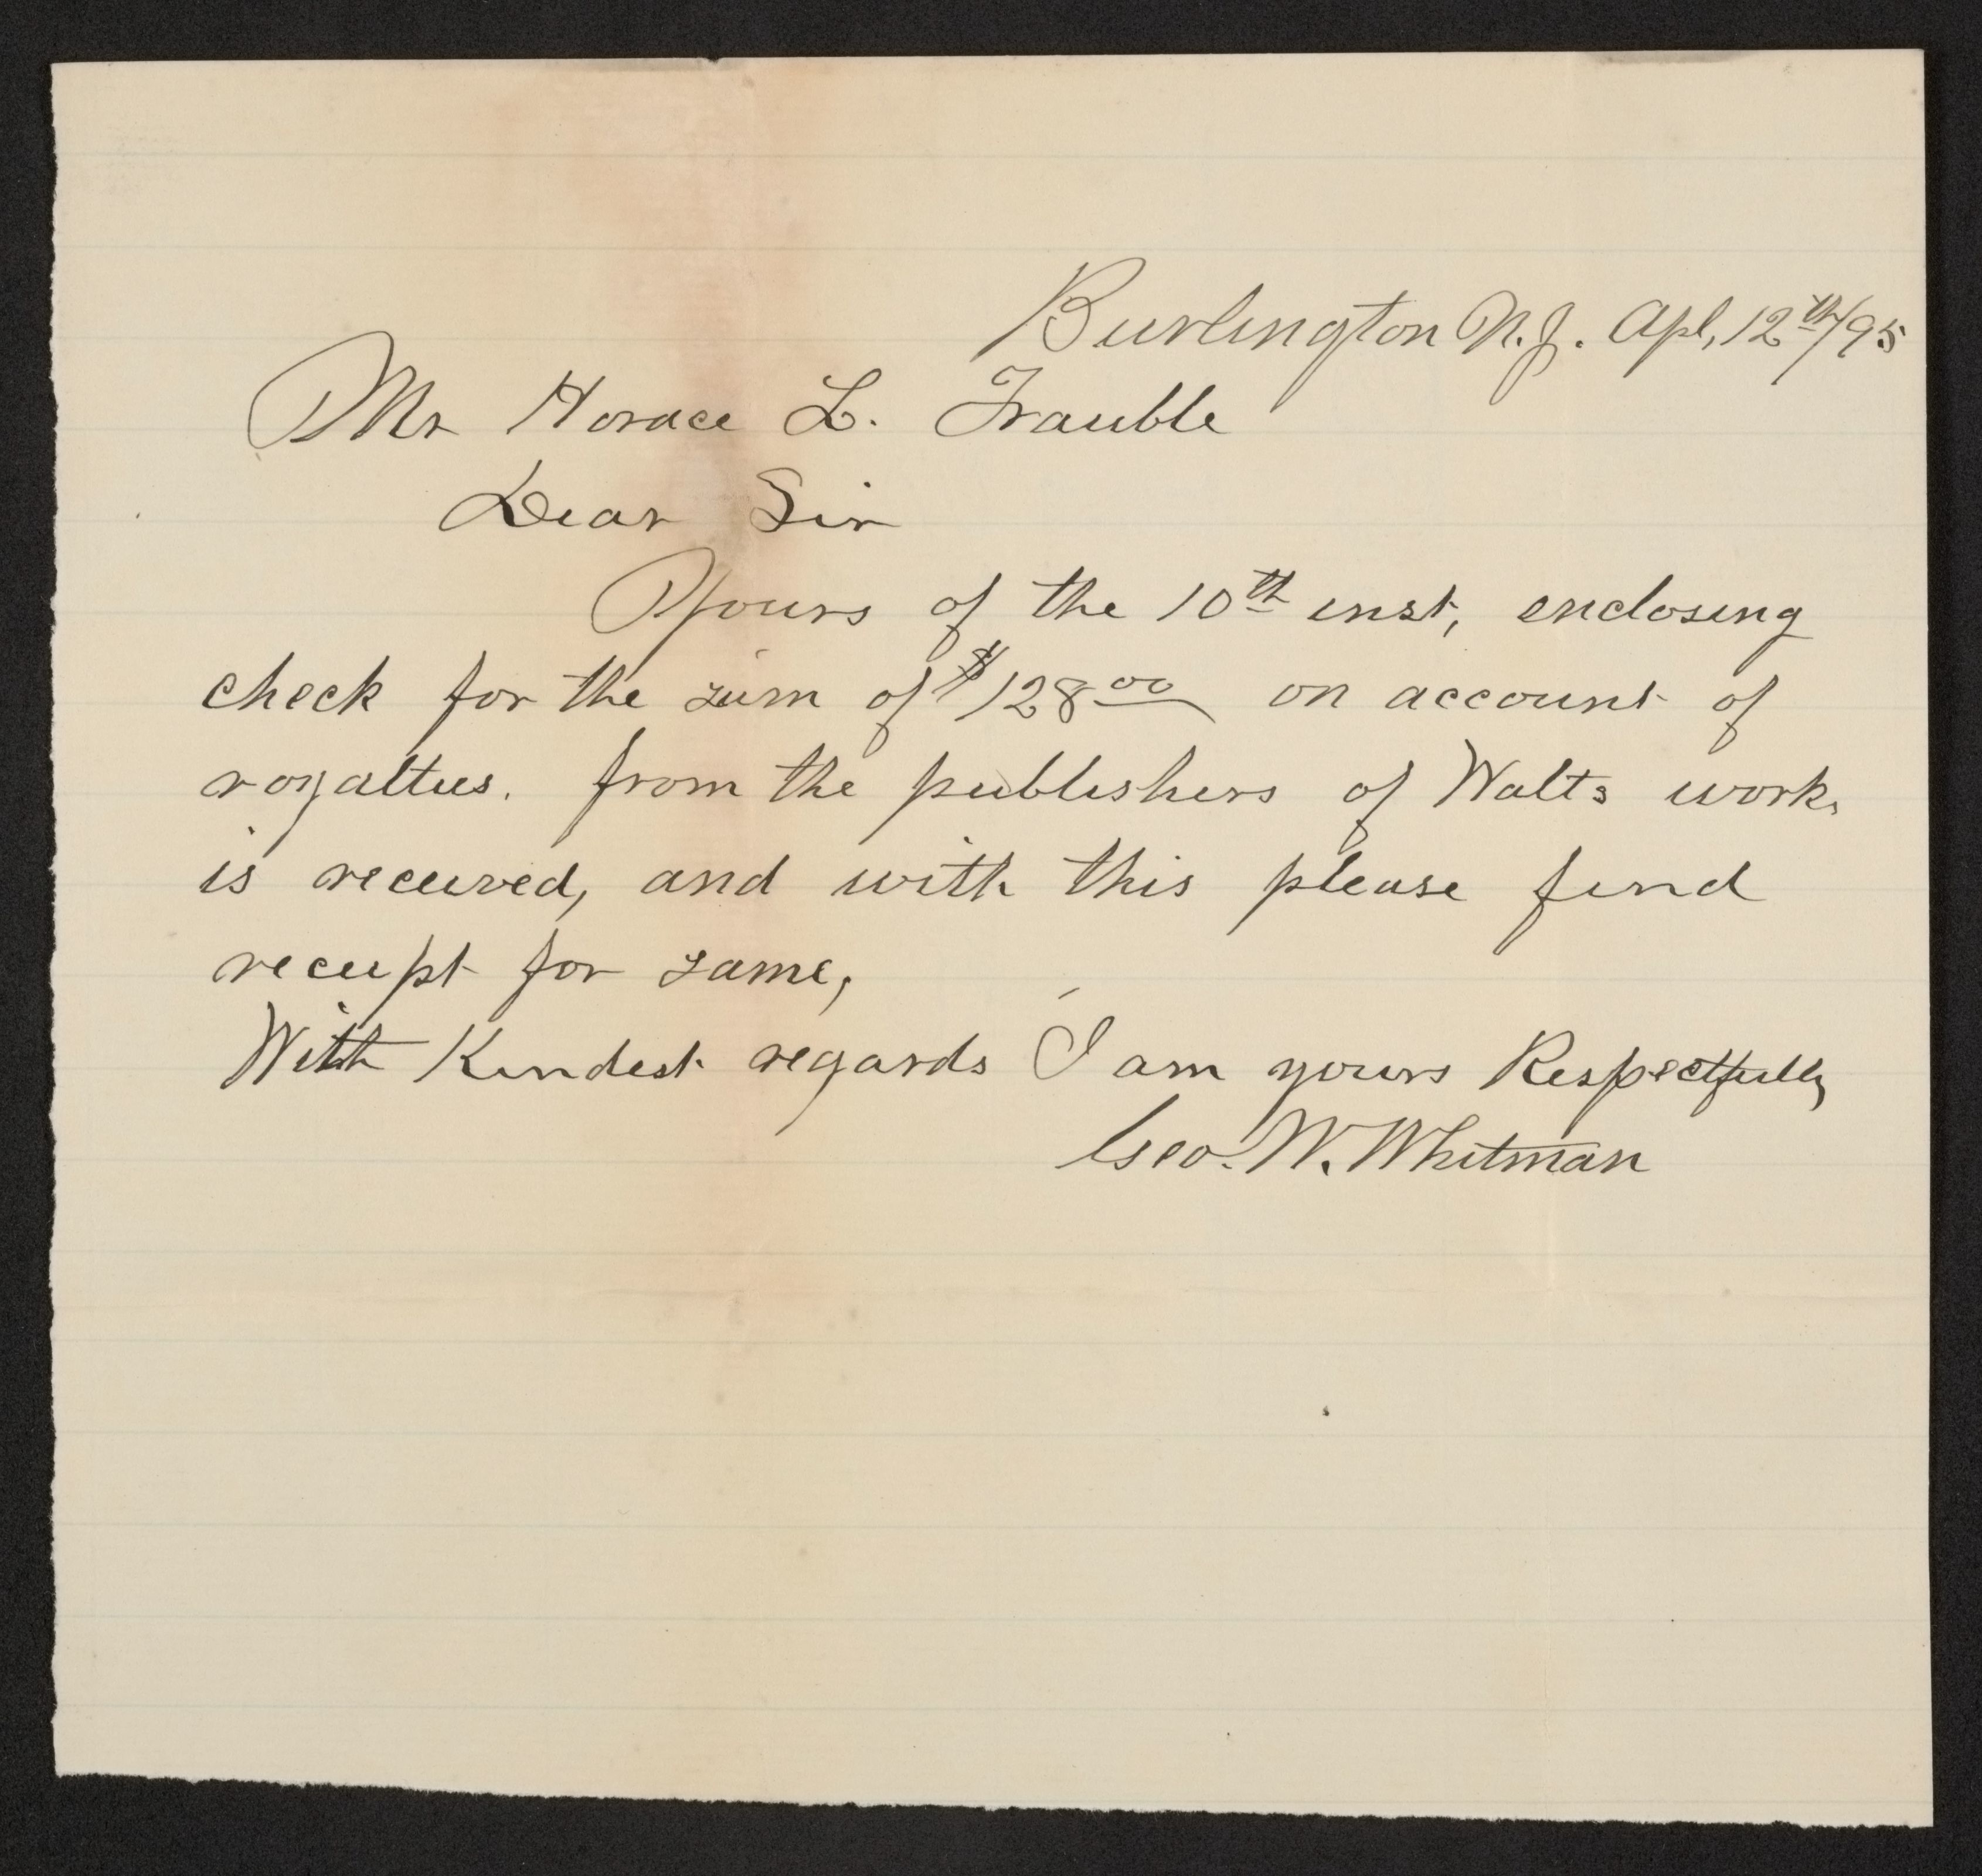 Burlington N.J. Apl, 12th/95
Mr Horace L. Trauble
Dear Sir
Yours of the 10th inst, enclosing
check for the sum of $128 00 on account of
royalties. from the publishers of Walts work,
is received, and with this please find
receipt for same,
With Kindest regards I am yours Respectfully
Geo. W. Whitman